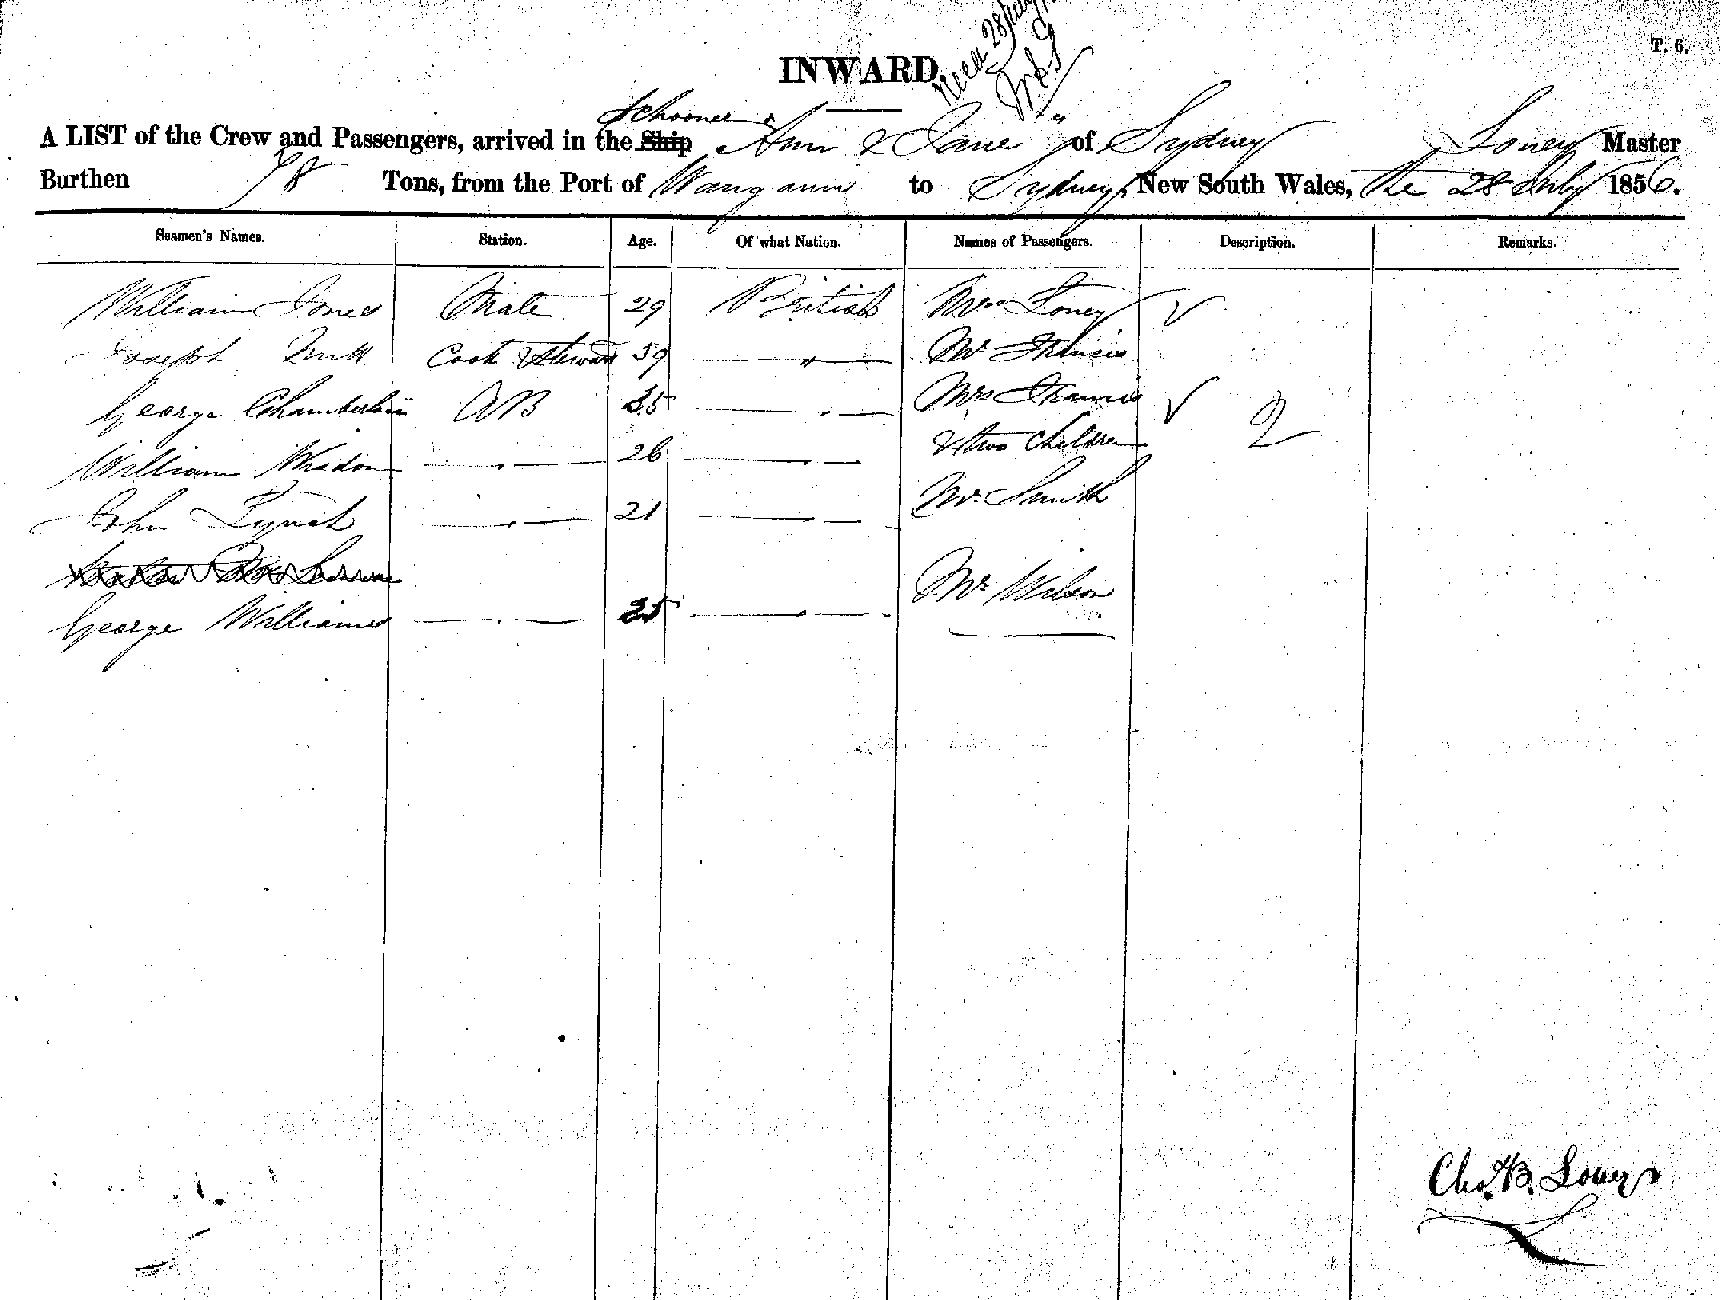 T. 6.
INWARD
Recd 28 July
Schooner
A LIST of the Crew and Passengers, arrived in the Ship "Ann & Jane" of Sydney Loney Master
Burthen 78 Tons, from the Port of Wanganui to Sydney, New South Wales, the 28 July 1856.
Seamen's Names. Station. Age. Of what Nation. Names of Passengers. Description. Remarks.
William Jones Mate 29 British Mrs Loney
Joseph Cook & Steward 59 " Mr Francis
George Chamberlain AB 35 " Mrs Francis
& two children 2
William 26 "
Mr Smith
John Lynch " 21 "
Mr Wilson
George Williams " 25 "
Chas. B. Loney